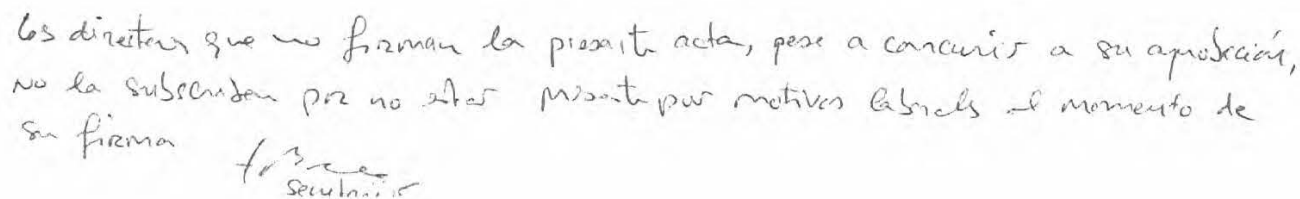 Los directores que no firman la presente acta, pese a concurrir a su aprobación,
no la subscriben por no estar presente por motivos laborales al momento de
su firma
secretario